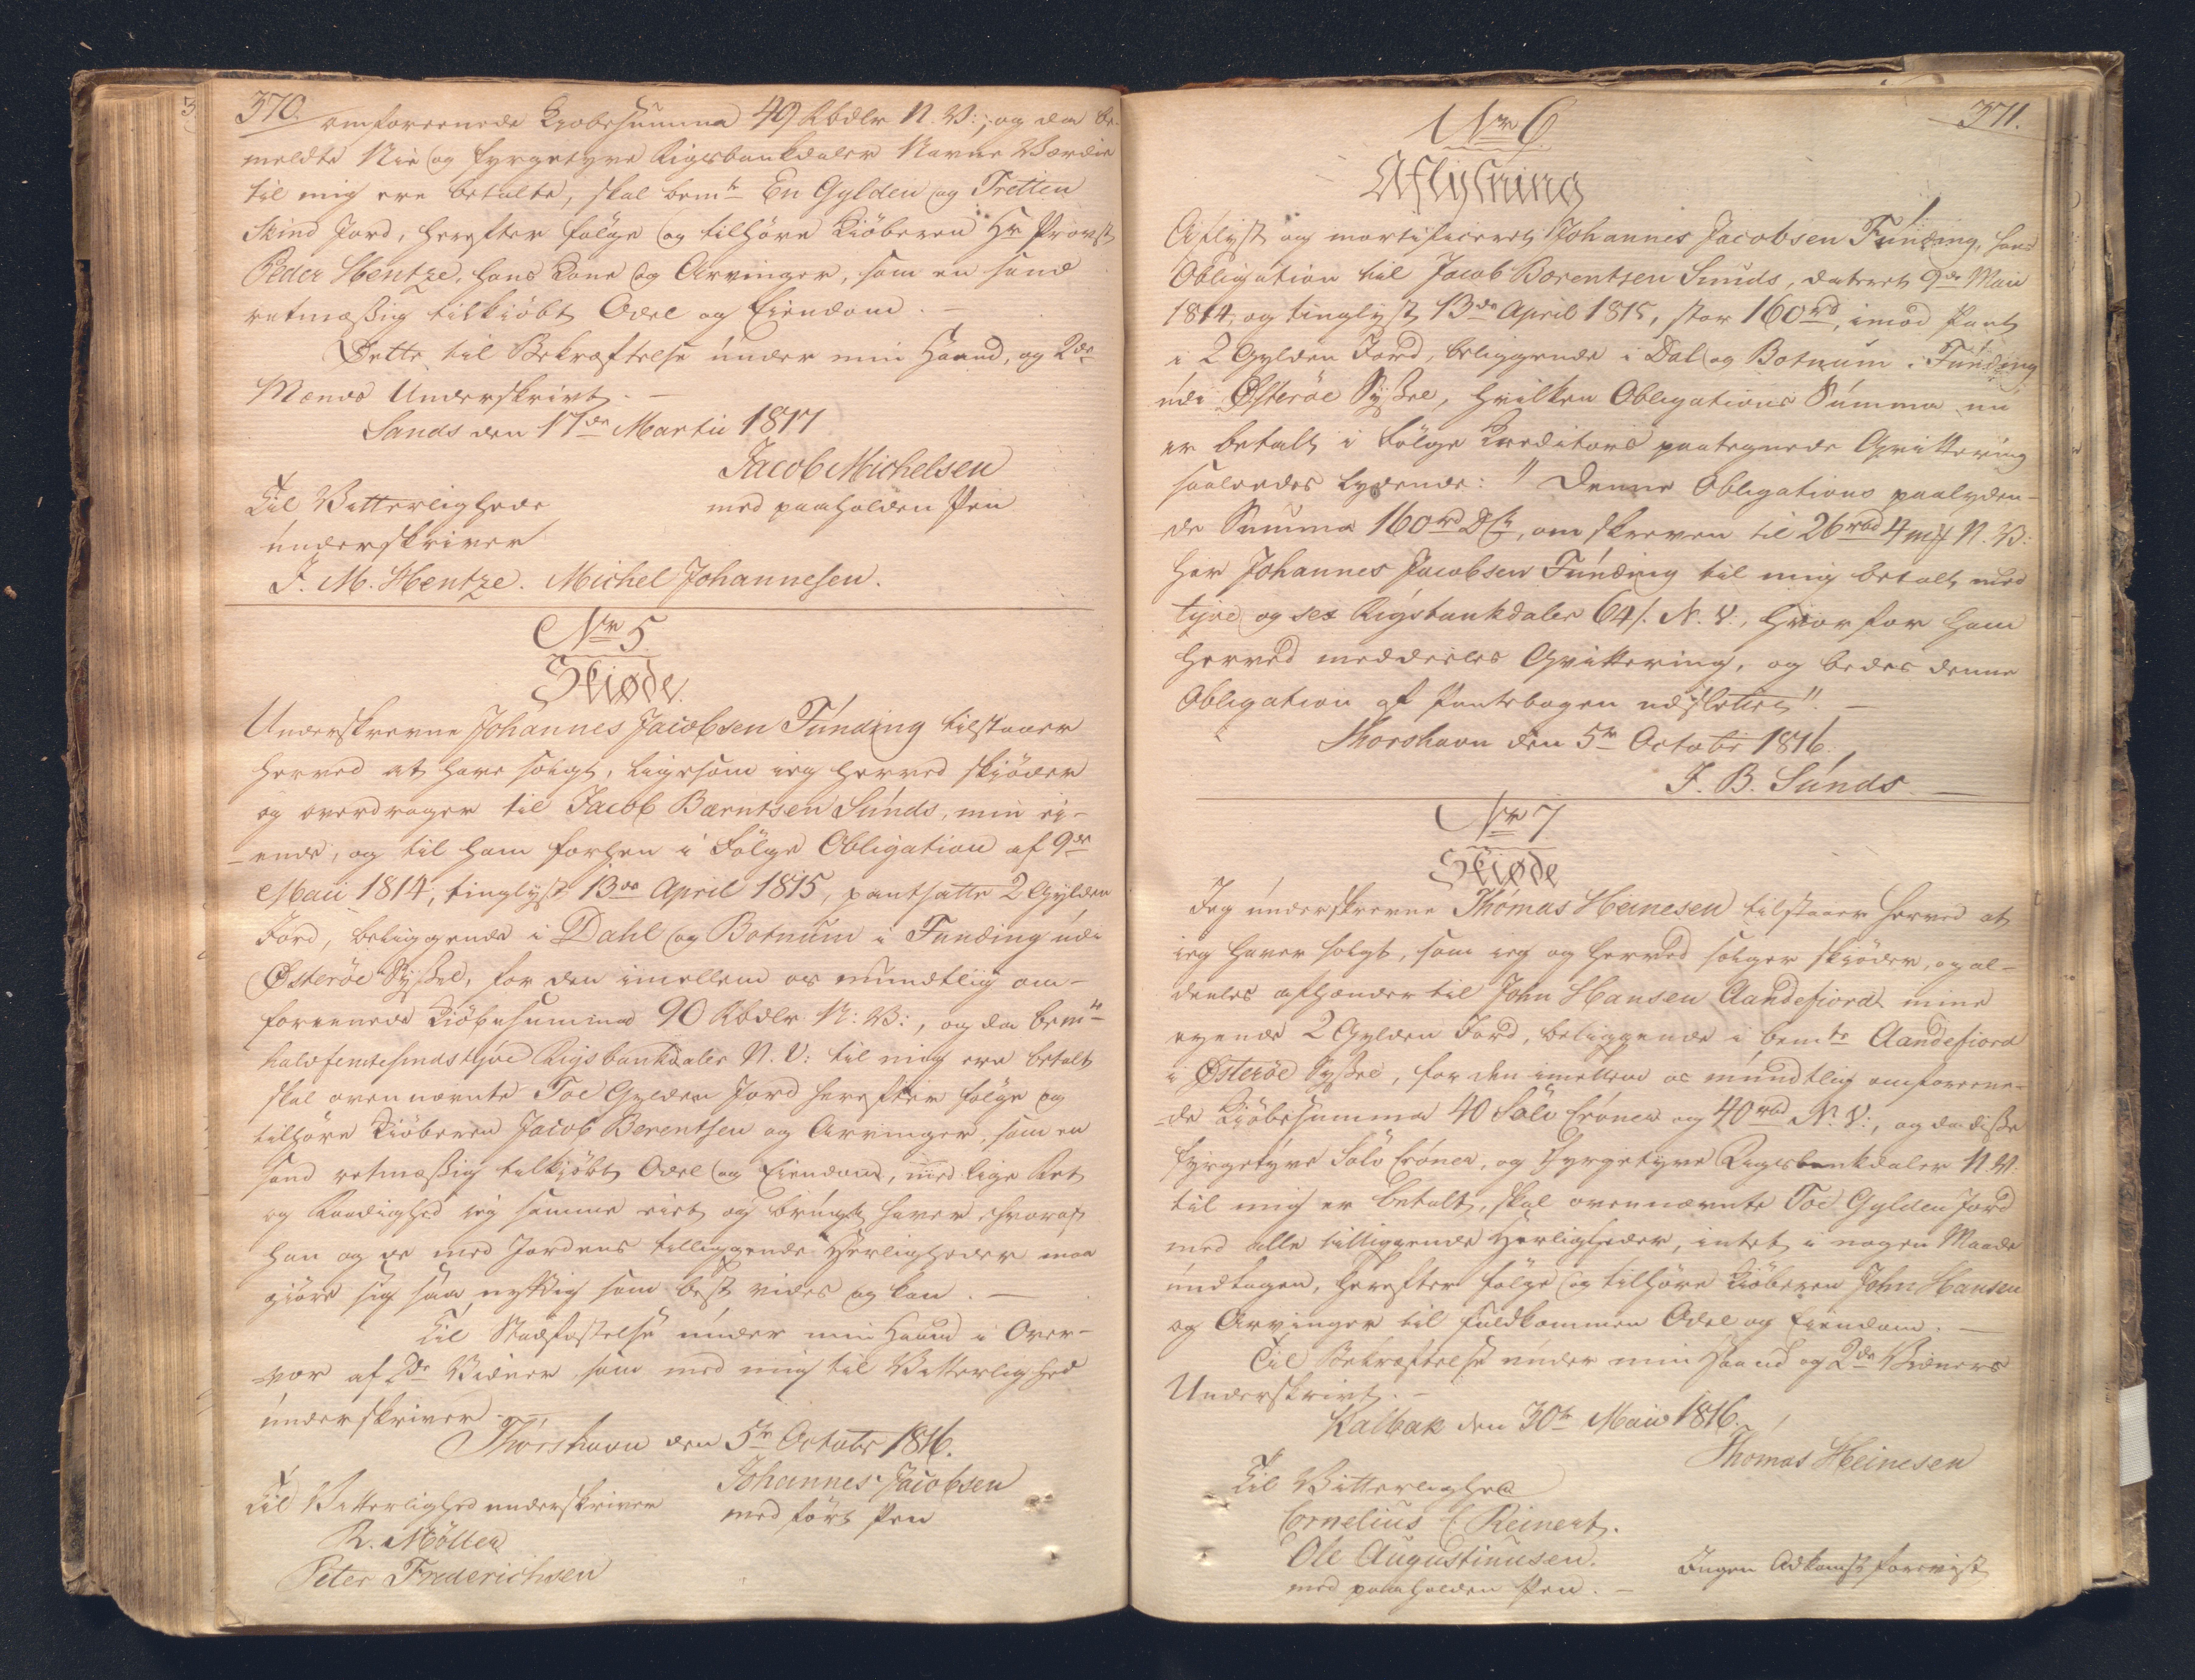 370.
omforeenede Kiøbesumma 49 Rbdlr N. V:, og da be-
meldte Nie og fyrgetyve Rigsbankdaler Navne Værdie
til mig ere betalte, skal bemte En Gylden og Tretten
Skind Jord, herefter følge og tilhøre Kiøberen Hr Provst
Peder Hentze, hans Kone og Arvinger, som en sand
retmæssig tilkiøbt Odel og Eiendom. –
Dette til Bekræftelse under min Haand, og 2de
Mænds Underskrivt. –
Sands den 17de Martii 1817
Jacob Michelsen
med paaholden Pen
Til Vitterlighede
underskriver
J. M. Hentze. Michel Johannesen.
Nr 5
Skiøde.
Underskrevne Johannes Jacobsen Funding tilstaaer
herved at have solgt, ligesom ieg herved skiøder
og overdrager til Jacob Bærntsen Sunds, min ei-
-ende, og til ham forhen i Følge Obligation af 9de
Maii 1814, tinglyst 13de April 1815, pantsatte 2 Gylden
Jord, beliggende i Dahl og Botnum i Funding udi
Østerøe Syssel, for den imellem os mundtlig om-
foreenede Kiøbesumma 90 Rbdlr N: V:, og da bemte
halvfemtesindstyve Rigsbankdaler N. V: til mig ere betalt
skal ovennævnte Toe Gylden Jord herefter følge og
tilhøre Kiøberen Jacob Berentsen og Arvinger, som en
sand retmæssig tilkiøbt Odel og Eiendom, med lige Ret
og Raadighed ieg samme eiet og brugt haver, hvoraf
han og de med Jordens tilliggende Herligheder maa
giøre sig saa nyttig som best vides og kan. –
Til Stadfæstelse under min Haand i Over-
-vær af 2de Vidner, som med mig til Vitterlighed
underskriver. –
Thorshavn den 5te Octobr 1816.
Johannes Jacobsen
med ført Pen
Til Vitterlighed underskriver
R. Möller
Peter Frederichsen
371.
Nr 6
Aflysning
Aflyst og mortificeret Johannes Jacobsen Funding, hans
Obligation til Jacob Bærentsen Sunds, dateret 9de Maii
1814, og tinglyst 13de April 1815, stor 160 rd, imod Pant
i 2 Gylden Jord, beliggende i Dal og Botnum i Funding
udi Østerøe Syssel, hvilken Obligations Summa nu
er betalt i Følge Creditors paategnede Qvittering
saaledes lydende: "Denne Obligations paalyden-
-de Summa 160 rd D C, omskreven til 26 rbd 4 mk N. V:
har Johannes Jacobsen Funding til mig betalt med
tyve og sex Rigsbankdaler 64 s. N. V:, hvorfor ham
herved meddeeles Qvittering, og bedes denne
Obligation af Pantebogen udslettet". –
Thorshavn den 5te Octobr 1816.
J. B. Sunds. –
Nr 7
Skiøde
Jeg underskrevne Thomas Heinesen tilstaaer herved at
ieg haver solgt, som ieg og herved sælger skiøder, og al-
deeles afhænder til John Hansen Aandefiord mine
eyende 2 Gylden Jord, beliggende i bemte Aandefiord
i Østerøe Syssel, for den imellem os mundtlig omforeene-
-de Kiøbesumma 40 Sølv Croner og 40 rbd N. V:, og da disse
fyrgetyve Sølv Croner, og Fyrgetyve Rigsbankdaler N. V.
til mig er betalt, skal ovennævnte Toe Gylden Jord
med alle tilliggende Herligheder, intet i nogen Maade
undtagen, herefter følge og tilhøre Kiøberen John Hansen
og Arvinger til fuldkommen Odel og Eiendom. –
Til Bekræftelse under min Haand og 2de Vidners
Underskrivt. –
Kalbak den 30te Maii 1816.
Thomas Heinesen
Til Vitterlighed
Cornelius C Reinert.
Ole Augustinusen.
med paaholden Pen. –
Ingen Adkomst foreviist